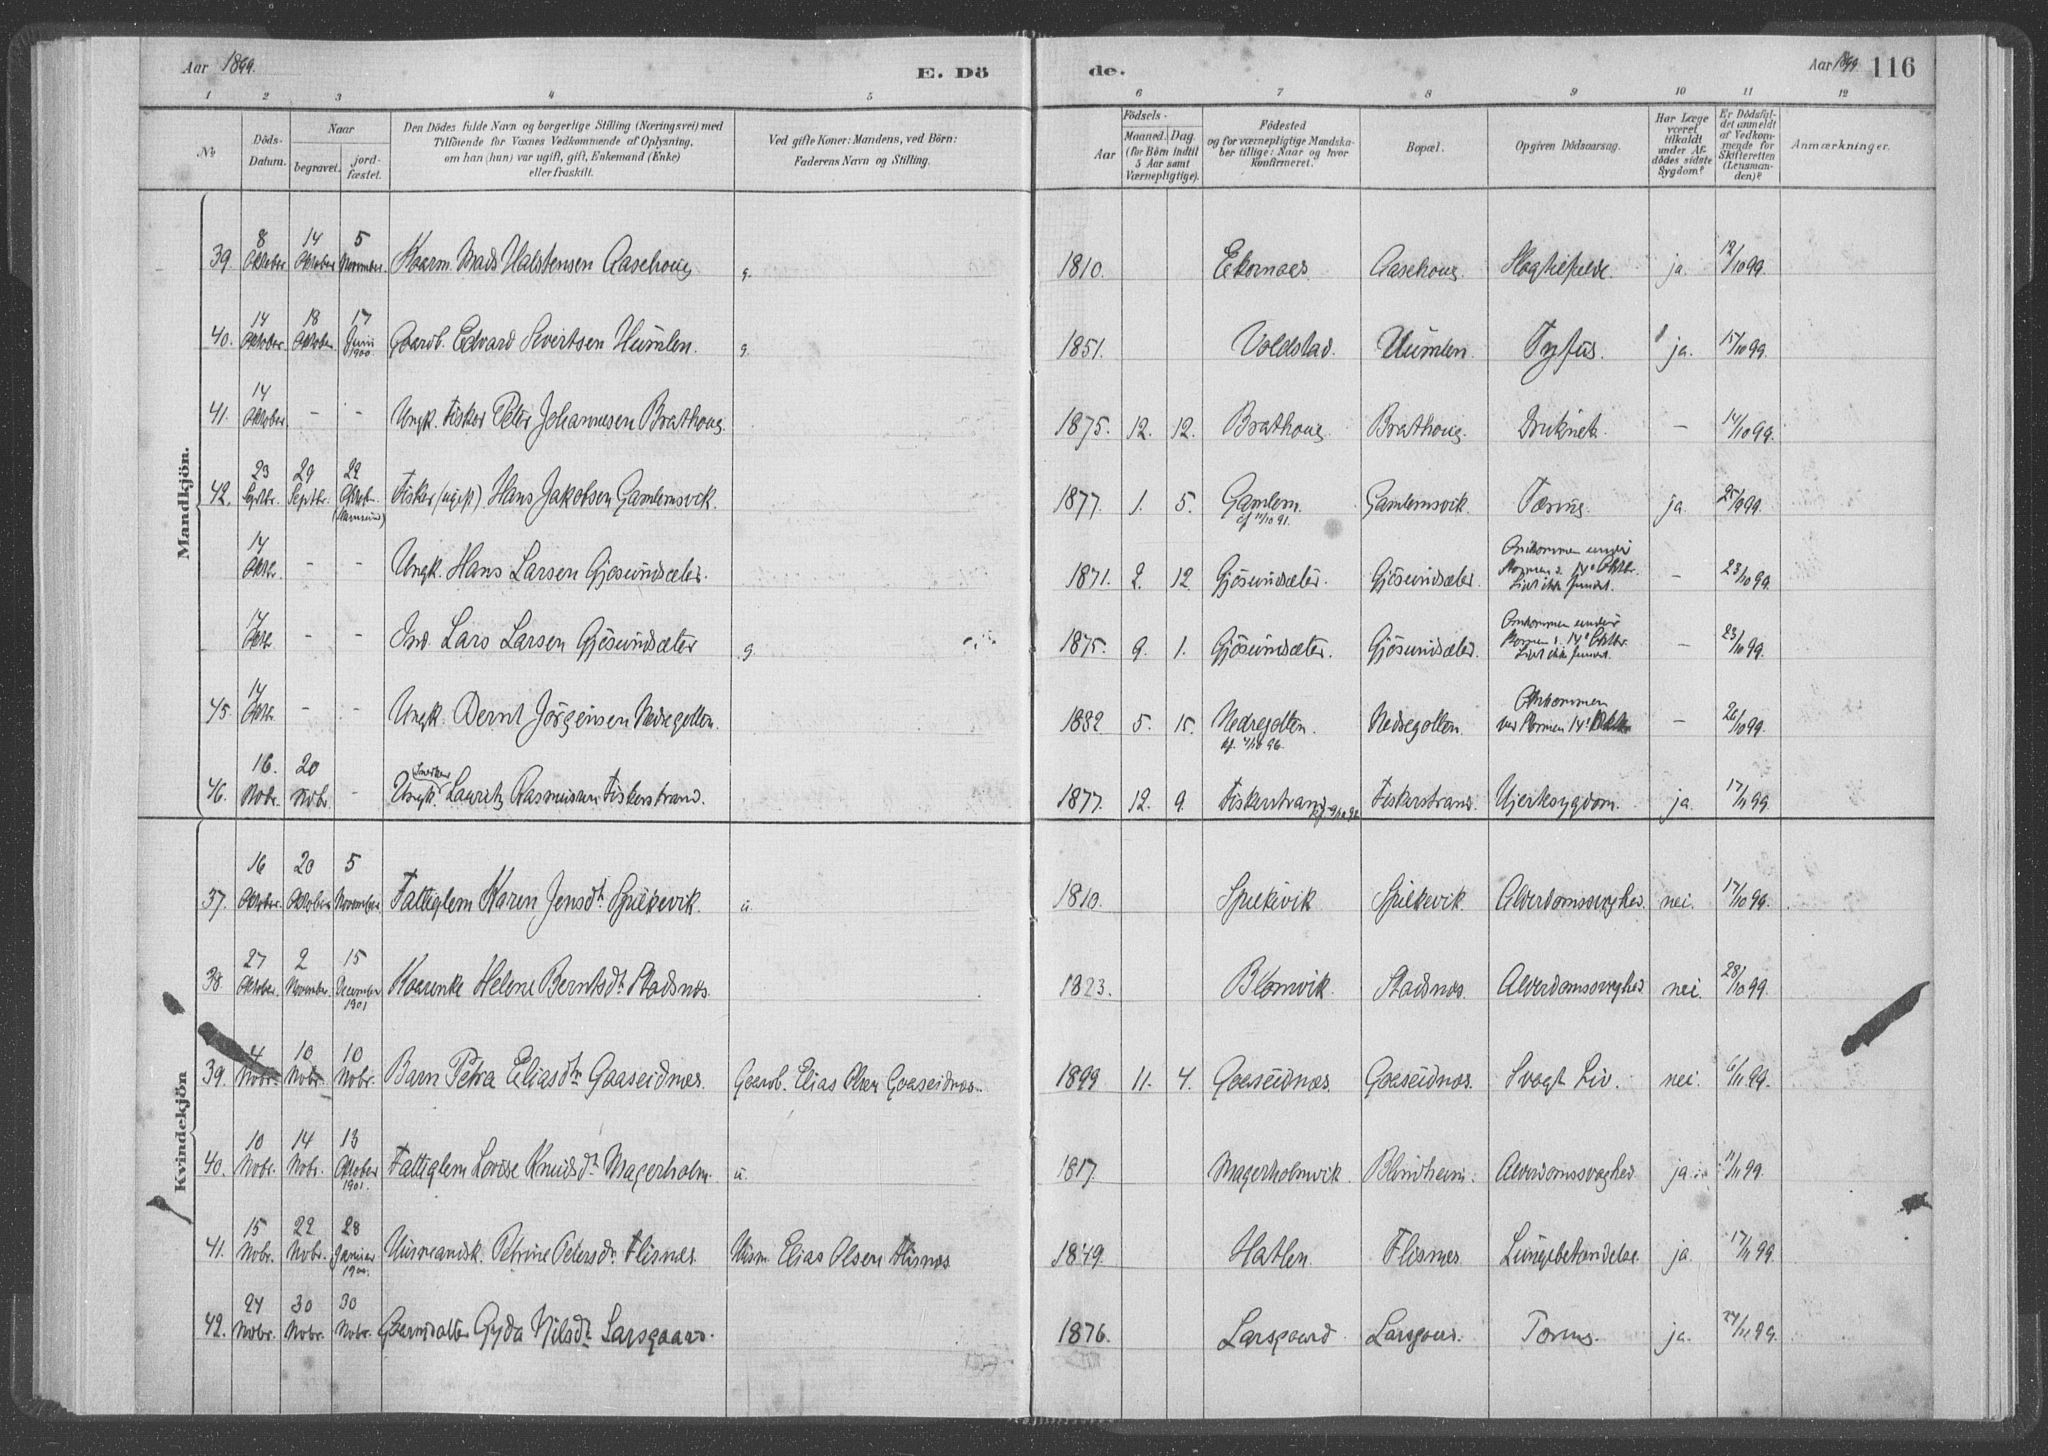 Aar 1899.
E. Dö
de.
Aar 1899
116
1 2 3 4 5 6 7 8 9 10 11 12
No
Döds-
Datum.
Naar
begravet.
jord-
fæstet.
Den Dödes fulde Navn og borgerlige Stilling (Næringsvei) med
Tilföiende for Voxnes Vedkommende af Oplysning,
om han (hun) var ugift, gift, Enkemand (Enke)
eller fraskilt.
Ved gifte Koner: Mandens, ved Börn:
Faderens Navn og Stilling.
Födsels-
Aar
Maaned. Dag.
(for Börn indtil
5 Aar samt
Værnepligtige).
Födested
og for værnepligtige Mandska-
ber tillige: Naar og hvor
konfirmeret.
Bopæl.
Opgiven Dödsaarsag.
Har Læge
været
tilkaldt
under Af-
dödes sidste
Sygdom?
Er Dödsfal-
det anmeldt
af Vedkom-
mende for
Skifteretten
(Lensman-
den)?
Anmærkninger.
Mandkjön.
39. 8 Oktober 14 Oktober 5 November Kaarm. Mads Halstensen Aasehoug g. 1810. Ekornæs Aasehoug ja 12/10 99.
40. 14 Oktober 18 Oktober 17 Juni 1900. Gaardb. Edvard Sivertsen Humlen. g. 1851. Voldstad. Humlen. Tyfus. ja. 15/10 99.
41. 14 Oktober - - Ungk. Fisker Peter Johannesen Brathoug. 1875. 12. 12. Brathoug Brathoug. Druknet. - 14/10 99.
42. 23 Septbr. 29 Septbr. 22 Oktob. Fisker (ugift). Hans Jakobsen Gamlemsvik. 1877. 1. 5. Gamlem. Gamlemsvik. Tæring ja 25/9 99.
14 Oktbr. - - Ungk. Hans Larsen Gjösundsæter. 1871. 2. 12. Gjösundsæter. Gjösundsæter. Omkommen under Stormen d. 14de Oktbr. Liget ikke fundet. - 23/10 99.
14 Oktbr. - - Ind. Lars Larsen Gjösundsæter g. 1875. 9. 1. Gjösundsæter. Gjösundsæter. Omkommen under Stormen d. 14de Oktbr. Liget ikke fundet. - 23/10 99.
45. 14 Oktbr. - - Ungk. Bernt Jörgensen Nedregotten. 1882. 5. 15. Nedregotten Nedregotten. Omkommen ved Stormen 14de - 26/10 99.
46. 16. Novbr. 20 Novbr. - Ungk. Snedker Lauritz Rasmussen Fiskerstrand. 1877. 12. 9. Fiskerstrand Fiskerstrand. Hjertesygdom. ja. 17/11 99.
Kvindekjön
37. 16 Oktober. 20 Oktober 5 November Fattiglem Karen Jensdt Spilkevik. u. 1810. Spilkevik Spilkevik. Alderdomssvaghed. nei. 17/10 99.
38 27 Oktober. 2 November. 15 December 1901 Kaarenke Helene Berntsdt Stadsnæs. 1823. Blomvik. Stadsnæs. Alderdomssvaghed nei. 28/10 99.
39. 4 Novbr. 10 Novbr. 10 Novbr. Barn Petra Eliasdtr Gaaseidnæs. Gaardb. Elias Olsen Gaaseidnæs. 1899 11. 4. Gaaseidnæs. Gaaseidnæs. Svagt Liv. nei. 6/11 99.
40. 10 Novbr. 14 Novbr. 13 Oktober 1901. Fattiglem Lovise Knudsdt Magerholm. u. 1817. Magerholmvik. Blindheim. Alderdomssvaghed ja. 11/11 99.
41. 15 Novbr. 22 Novbr. 28 Januar 1900. Husmandsk. Petrine Petersdtr Flisnæs. Husm. Elias Olsen Flisnæs 1849. Hatlen. Flisnæs Lungebetændelse ja. 17/11 99.
42. 24 Novbr. 30 Novbr. 30 Novbr. Gaardatter Gyda Nilsdt Larsgaard. 1876. Larsgaard. Larsgaard. Tæring. ja. 24/11 99.